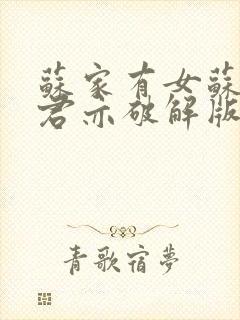 蘇家有女蘇
君亦破解版
青歌宿夢